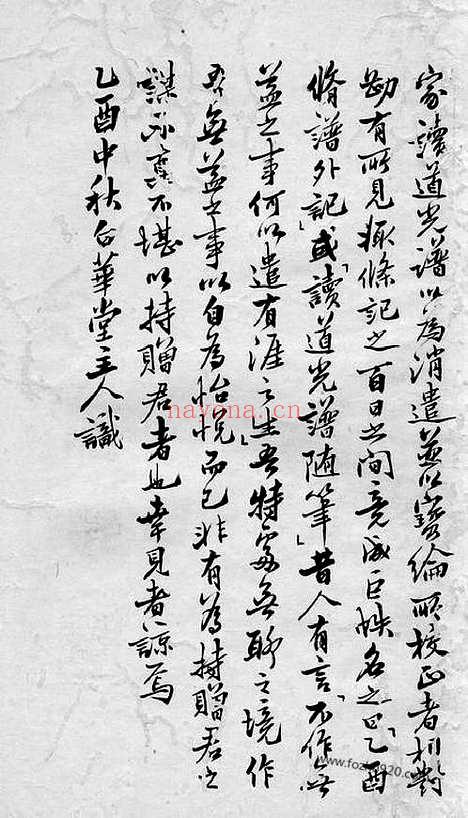 家讀道光譜以為消遣並以寶綸所校正者相對
勘有所見輒條記之百日之間竟成巨帙名之曰「乙酉
脩譜外記」或「讀道光譜隨筆」昔人有言「不作無
益之事何以遣有涯之生」吾特處無聊之境作
吾無益之事以自為怡悅而已非有為持贈君之
謀亦真不堪以持贈君者也幸見者諒焉
乙酉中秋台華堂主人識
nayona.cn